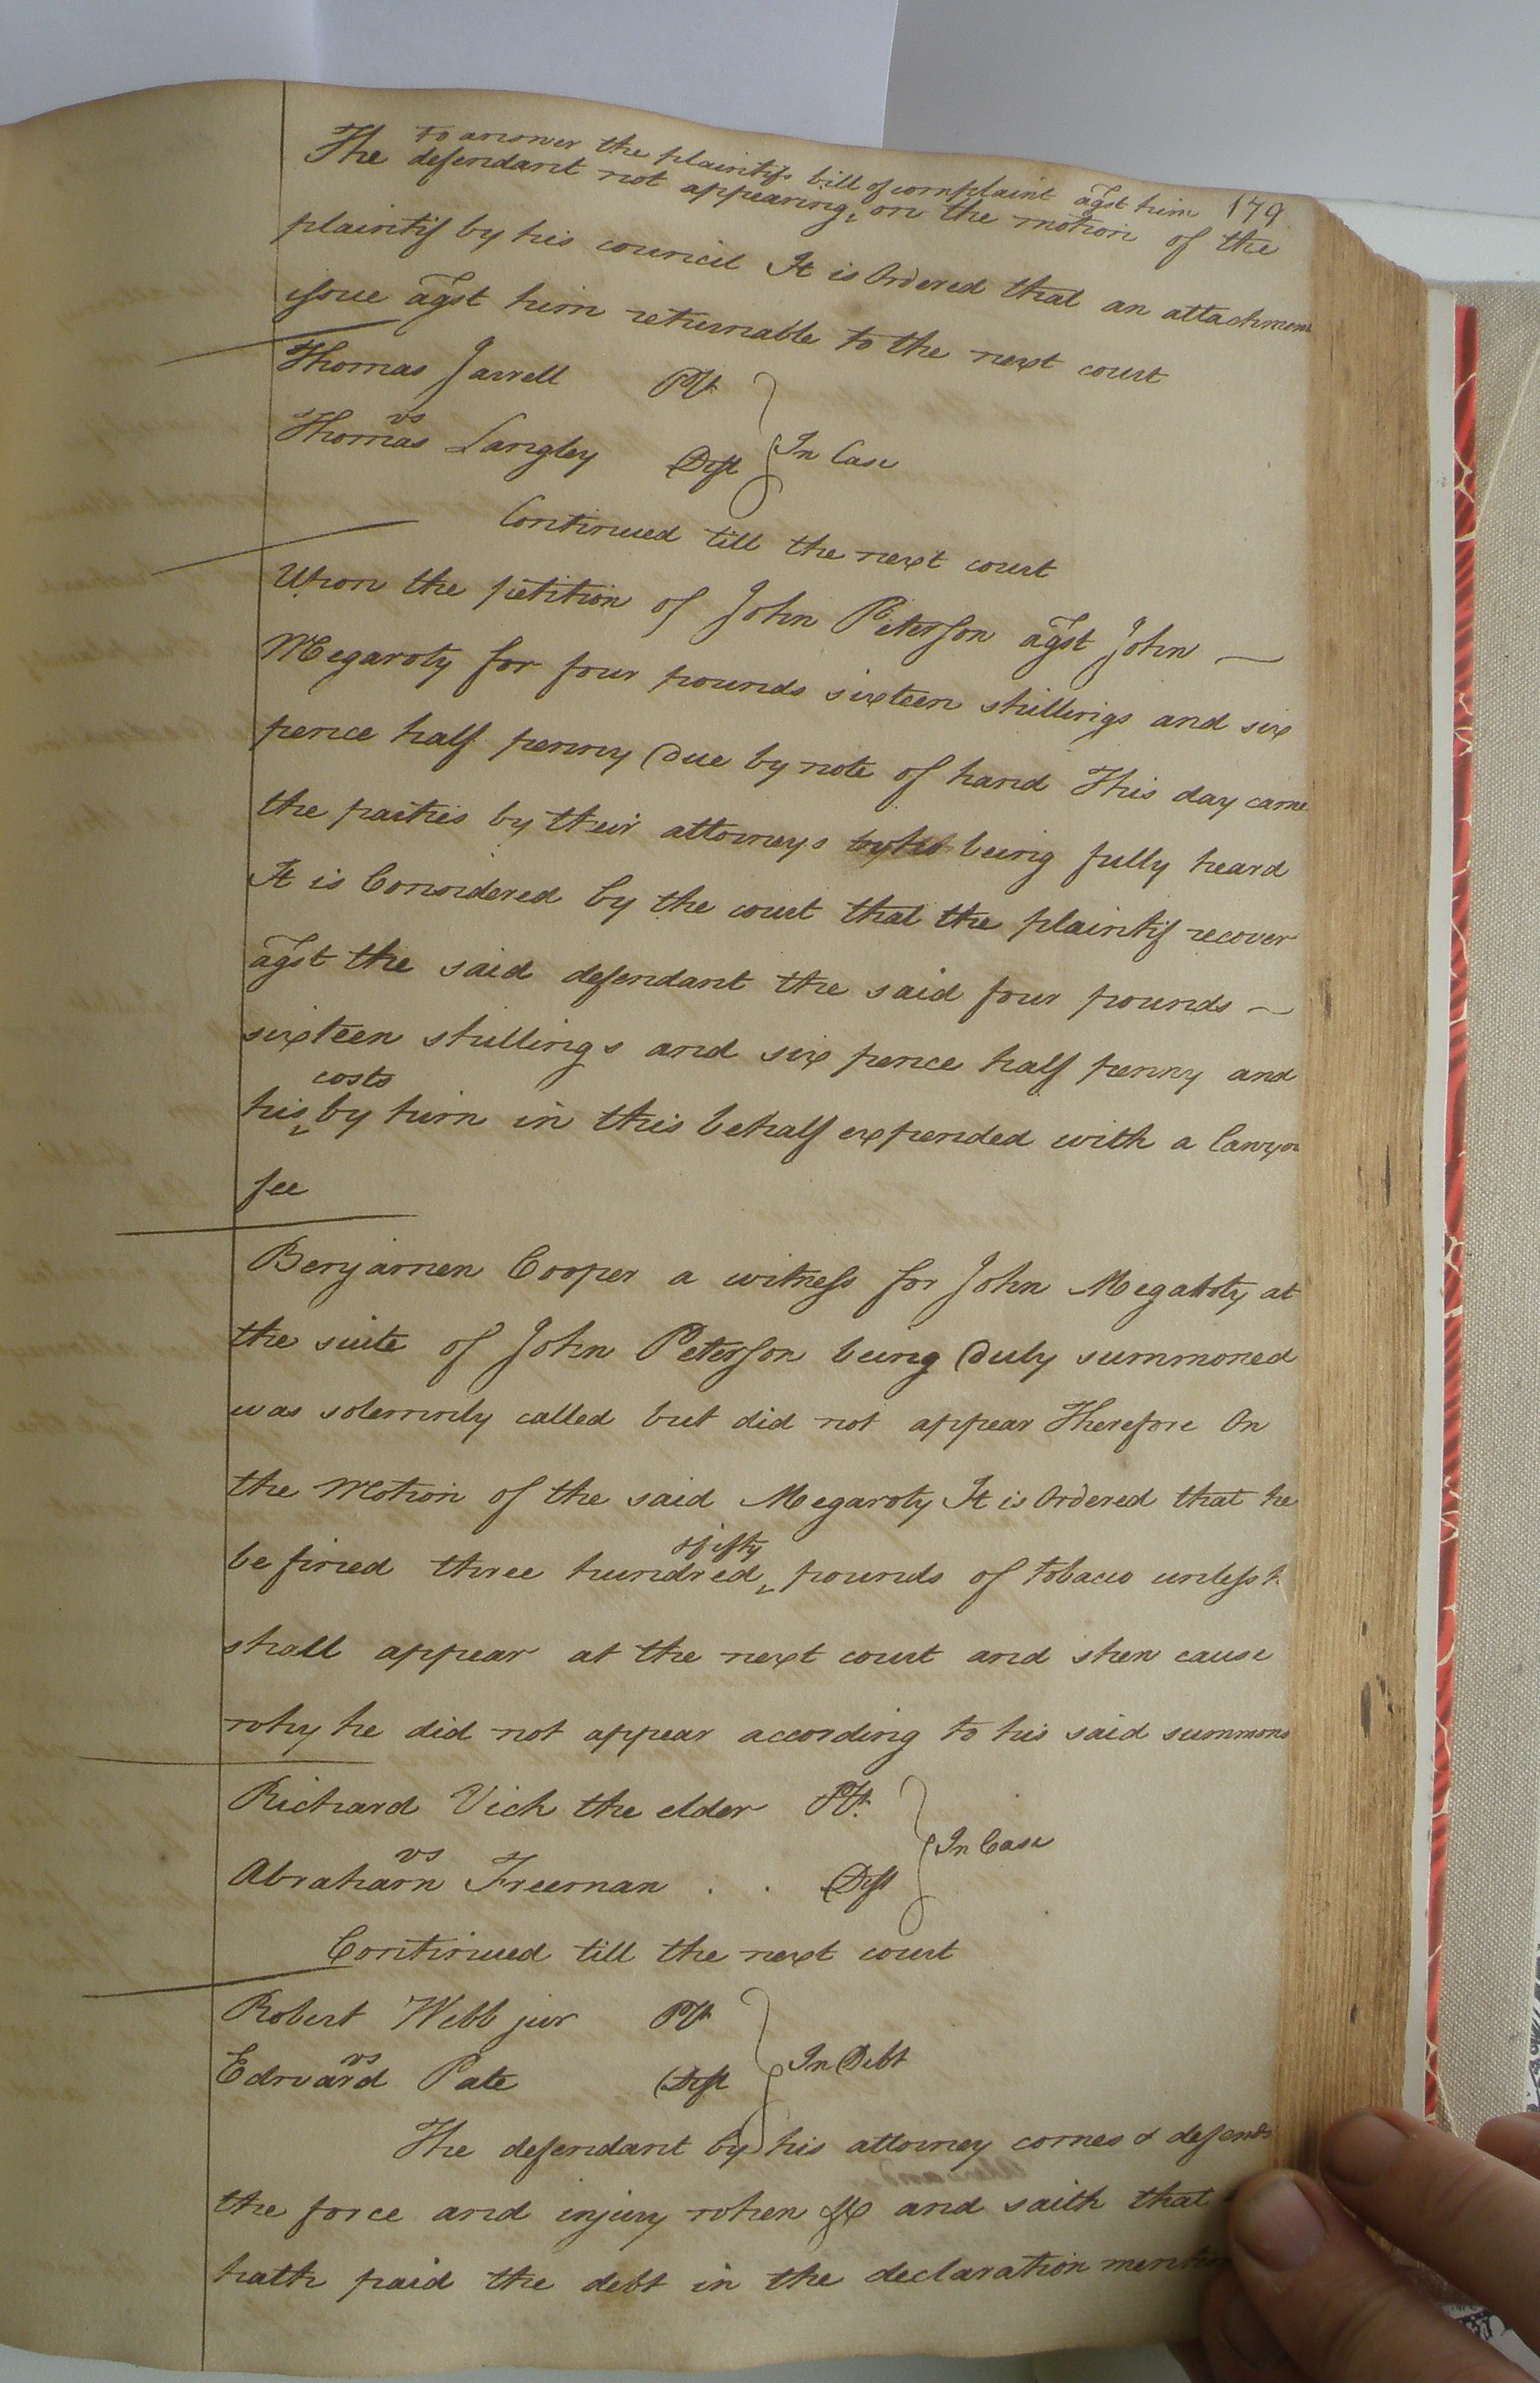 to answer the plaintifs bill of complaint agst him 179
The defendant not appearing, on the motion of the
plaintif by his council It is Ordered that an attachment
issue agst him returnable to the next court
Thomas Jarrell Plt
vs
Thomas Langley Deft In Case
Continued till the next court
Upon the petition of John Peterson agst John
Megaroty for four pounds sixteen shillings and six
pence half penny Due by note of hand This day came
the parties by their attorneys being fully heard
It is Considered by the court that the plaintif recover
agst the said defendant the said four pounds
sixteen shillings and six pence half penny and
costs
his by him in this behalf expended with a Lawyer
fee
Benjamen Cooper a witness for John Megaroty at
the suite of John Peterson being Duly summoned
was solemnly called but did not appear Therefore On
the Motion of the said Megaroty It is Ordered that he
&fifty
be fined three hundred pounds of tobacco unless h
shall appear at the next court and shew cause
why he did not appear according to his said summons
Richard Vick the elder Plt.
vs In Case
Abraham Freeman . . Deft
Continued till the next court
Robert Webb jur Plt
vs In Debt
Edward Pate Deft
The defendant by his attorney comes & defends
the force and injury when &c and saith that
hath paid the debt in the declaration mention